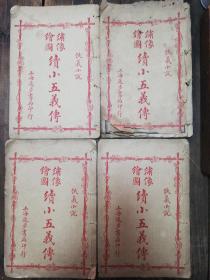 俠義小說
繡像
繪圖
續小五義傳
上海進步書局印行
俠義小說
繡像
繪圖
續小五義傳
上海進步書局印行
俠義小說
繡像
繪圖
續小五義傳
上海進步書局印行
俠義小說
繡像
繪圖
續小五義傳
上海進步書局印行